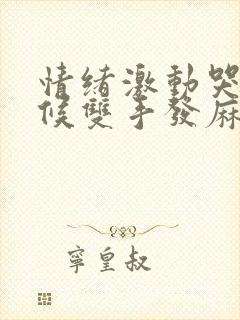 情緒激動哭
候雙手發麻
寧皇叔